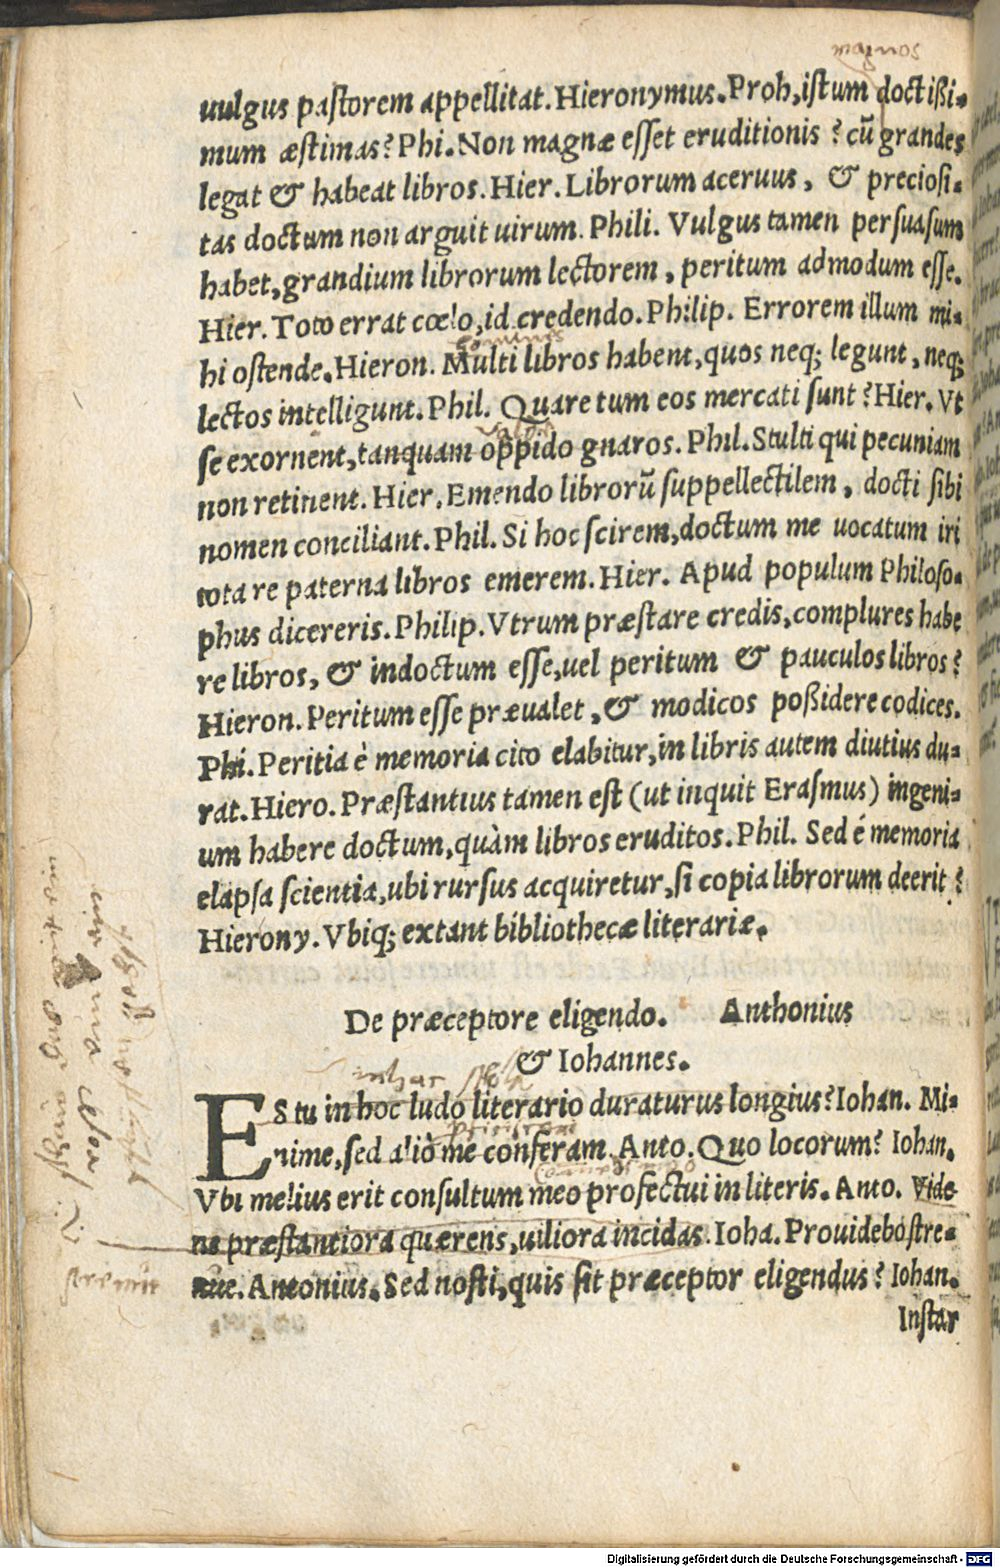 magnos
uulgus pastorem appellitat. Hieronymus. Proh, istum doctißi-
mum æstimas? Phi. Non magnæ esset eruditionis? cũ grandes
legat & habeat libros. Hier. Librorum aceruus, & preciosi-
tas doctum non arguit uirum. Phili. Vulgus tamen persuasum
habet, grandium librorum lectorem, peritum admodum esse.
Hier. Toto errat cœlo, id credendo. Philip. Errorem illum mi-
hi ostende. Hieron. Multi libros habent, quos neq; legunt, neq;
lectos intelligunt. Phil. Quare tum eos mercati sunt? Hier. Vt
se exornent, tanquam oppido gnaros. Phil. Stulti qui pecuniam
non retinent. Hier. Emendo librorũ suppellectilem, docti sibi
nomen conciliant. Phil. Si hoc scirem, doctum me uocatum iri
tota re paterna libros emerem. Hier. Apud populum Philoso-
phus dicereris. Philip. Vtrum præstare credis, complures habe
re libros, & indoctum esse, uel peritum & pauculos libros?
Hieron. Peritum esse præualet, & modicos poßidere codices.
Phi. Peritia è memoria cito elabitur, in libris autem diutius du-
rat. Hiero. Præstantius tamen est (ut inquit Erasmus) ingeni-
um habere doctum, quàm libros eruditos. Phil. Sed é memoria
elapsa scientia, ubi rursus acquiretur, si copia librorum deerit?
Hierony. Vbiq; extant bibliothecæ literariæ.
De præceptore eligendo. Anthonius
& Iohannes.
ES tu in hoc ludo literario duraturus longius? Iohan. Mi-
nime, sed aliò me conferam. Anto. Quo locorum? Iohan.
Vbi melius erit consultum meo profectui in literis. Anto. Vide
ne præstantiora quærens, uiliora incidas. Ioha. Prouidebo stre-
nue. Antonius. Sed nosti, quis sit præceptor eligendus? Iohan.
Instar
Digitalisierung gefördert durch die Deutsche Forschungsgemeinschaft - DFG